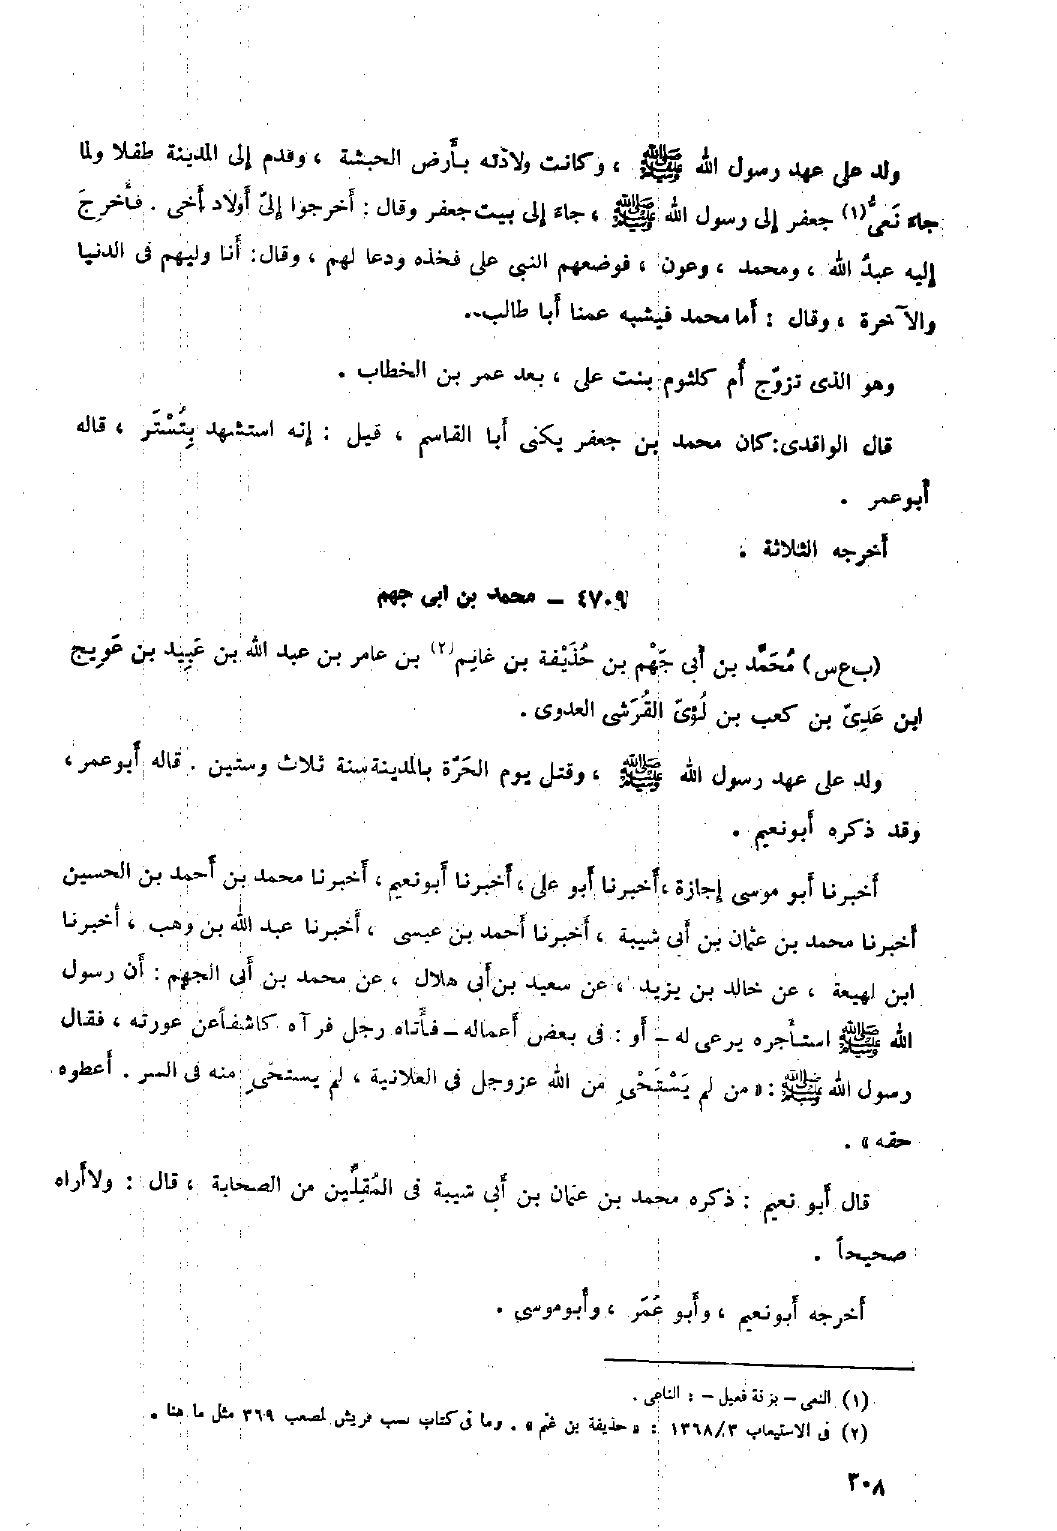 ولد على عهد رسول الله ﷺ ، وكانت ولادته بأرض الحبشة ، وقدم إلى المدينة طفلا ولما
جاءَ نَعىُّ(١) جعفر إلى رسول الله ﷺ ، جاءَ إلى بيت جعفر وقال : أخرجوا إلىّ أولاد أخى . فأخرجَ
إليه عبدُ الله ، ومحمد ، وعون ، فوضعهم النبى على فخذه ودعا لهم ، وقال : أنا وليهم فى الدنيا
والآخرة ، وقال : أما محمد فيشبه عمنا أبا طالب..
وهو الذى تزوّج أُم كلثوم بنت على ، بعد عمر بن الخطاب .
قال الواقدى : كان محمد بن جعفر يكنى أبا القاسم ، قيل : إنه استشهد بِتُسْتَر ، قاله
أبو عمر .
أخرجه الثلاثة .
٤٧٠٩ – محمد بن ابى جهم
(ب ع س) مُحَمَّد بن أبى جَهْم بن حُذَيْفة بن غانِم(٢) بن عامر بن عبد الله بن عَبِيد بن عَوِيج
ابن عَدِىّ بن كعب بن لُؤىّ القُرَشى العدوى .
ولد على عهد رسول الله ﷺ ، وقتل يوم الحَرّة بالمدينة سنة ثلاث وستين . قاله أبو عمر ،
وقد ذكره أبو نعيم .
أخبرنا أبو موسى إجازة ، أخبرنا أبو على ، أخبرنا أبو نعيم ، أخبرنا محمد بن أحمد بن الحسين
أخبرنا محمد بن عثمان بن أبى شيبة ، أخبرنا أحمد بن عيسى ، أخبرنا عبد الله بن وهب ، أخبرنا
ابن لهيعة ، عن خالد بن يزيد ، عن سعيد بن أبى هلال ، عن محمد بن أبى الجهم : أن رسول
الله ﷺ استأجره يرعى له – أو : فى بعض أعماله – فأتاه رجل فرآه كاشفاً عن عورته ، فقال
رسول الله ﷺ : « من لم يَسْتَحْىِ من الله عزوجل فى العلانية ، لم يستحْىِ منه فى السر . أعطوه
حقه » .
قال أبو نعيم : ذكره محمد بن عثمان بن أبى شيبة فى المُقِلِّين من الصحابة ، قال : ولا أراه
صحيحاً .
أخرجه أبو نعيم ، وأبو عُمَر ، وأبو موسى .
(١) النعى – بزنة فعيل – : الناعى .
(٢) فى الاستيعاب ١٣٦٨/٣ : « حذيفة بن غنم » . وما فى كتاب نسب قريش لمصعب ٣٦٩ مثل ما هنا .
٣٠٨